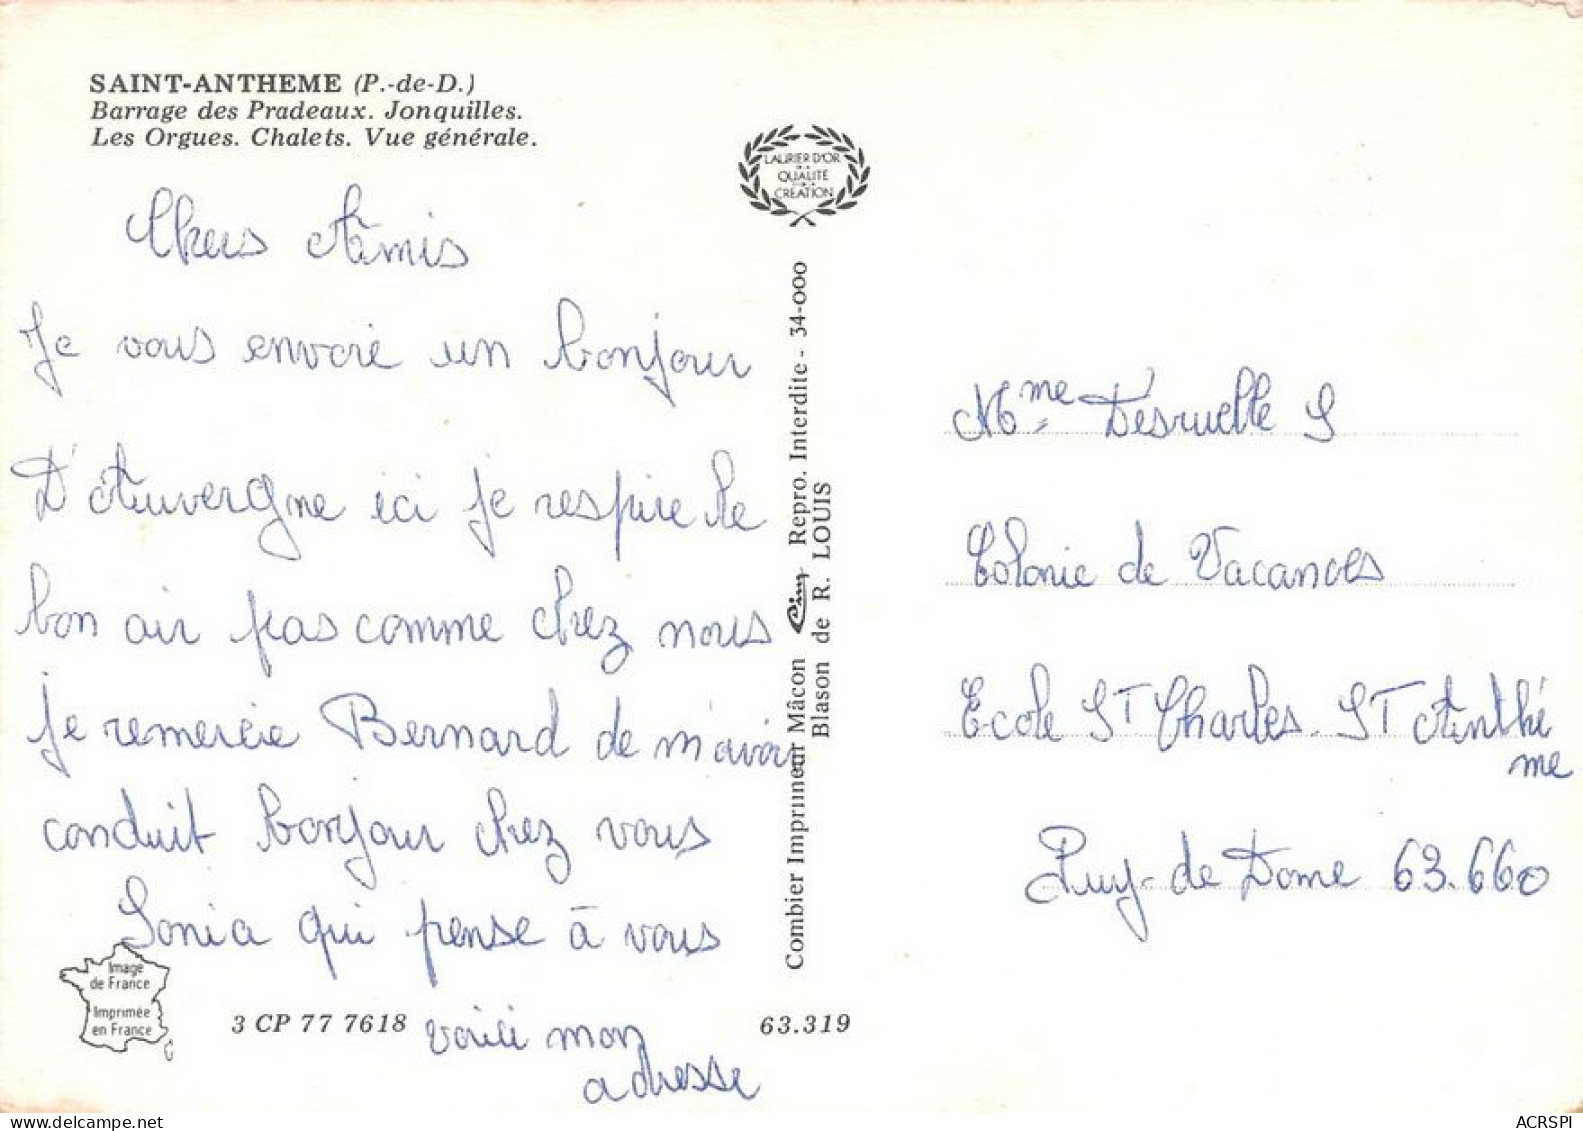 SAINT-ANTHEME (P.-de-D.)
Barrage des Pradeaux. Jonquilles.
Les Orgues. Chalets. Vue générale.
LAURIER D'OR
DE LA
QUALITE
CRÉATION
Chers Amis
Je vous envoie un bonjour
D'Auvergne ici je respire le
bon air pas comme chez nous
je remercie Bernard de m'avoir
conduit bonjour chez vous
Sonia qui pense à vous
voici mon
adresse
Image
de France
Imprimée
en France
3 CP 77 7618
63.319
Combier Imprimeur Mâcon Cim Repro. Interdite - 34-000
Blason de R. LOUIS
Mme Desruelle S
Colonie de Vacances
Ecole ST Charles. ST Anthé
me
Puy-de Dome 63.660
ACRSPI